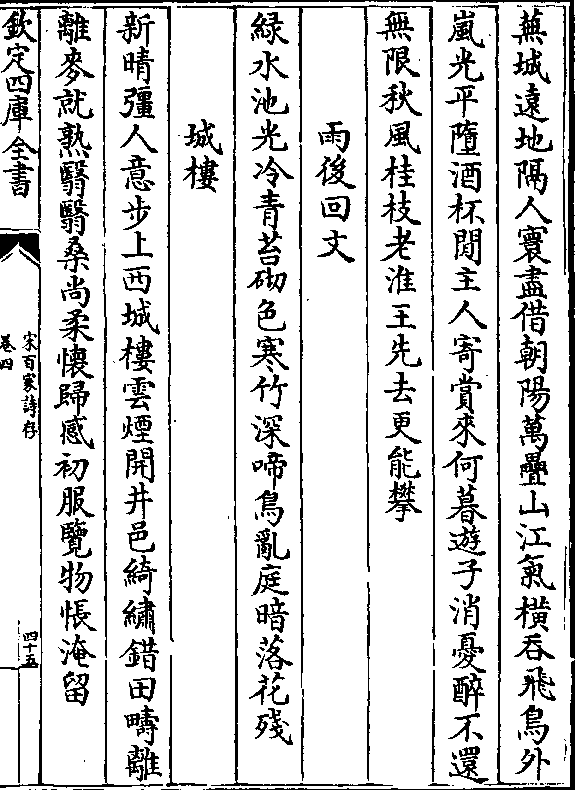 蕪城遠地隔人寰盡借朝陽萬疊山江氣橫吞飛鳥外
嵐光平墮酒杯閒主人寄賞來何暮遊子消憂醉不還
無限秋風桂枝老淮王先去更能攀
雨後回文
緑水池光冷青苔砌色寒竹深啼鳥亂庭暗落花殘
城樓
新晴彊人意步上西城樓雲煙開井邑綺繡錯田疇離
離麥就熟翳翳桑尚柔懷歸感初服覽物悵淹留
欽定四庫全書
宋百家詩存
卷四
四十五